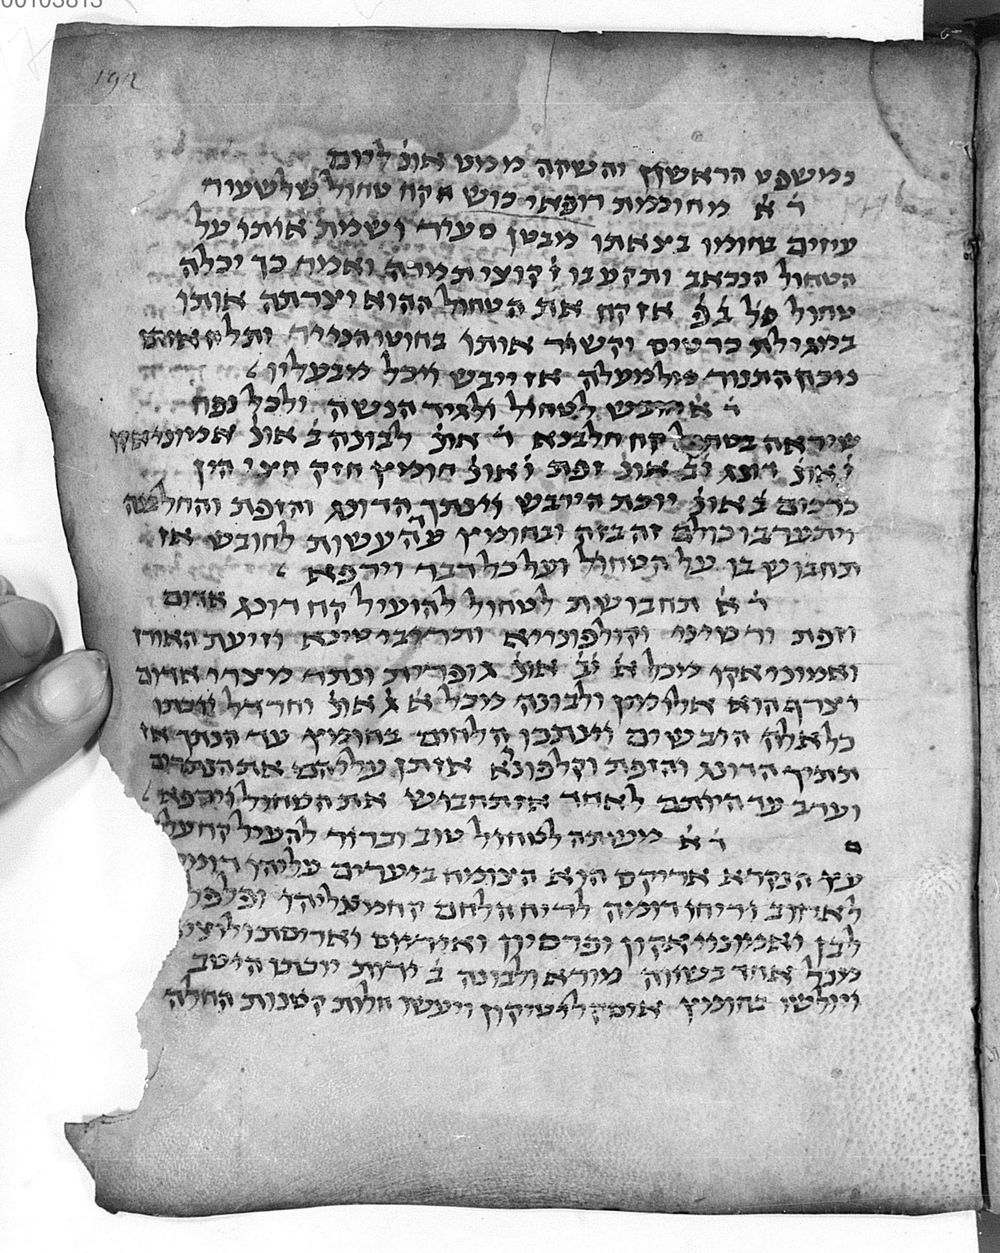 192
כמשפט הראשון והשקה ממט אונ׳ ליום
ר׳ א׳ מחוכמת רופאי כוש תקח טחול שלשעיר
עיזים בחומו בצאתו מבטן סעיר ושמת אותו על
הטחול הנכאב ותקע בו ז׳ קוצי תמרה ואמר כך יכלה
טחול פל׳ ב׳ פ׳ אז קח את הטחול ההוא וצרתה אותו
במגילת כרטיס וקשור אותו בחוטי הנייר ותלה אותו
נוכח התנור מלמעלה אז ייבש ויכל מבעליו
ר׳ א׳ חובש לטחול ולגיד הנשה ולכל נפח
שיראה בטחול קח חלבנא ר׳ אונ׳ לבונה ב׳ אונ׳ אמוניאקו
ו׳ אונ׳ דונג י׳ב׳ אונ׳ זפת ו׳ אונ׳ חומץ חזק חצי הין
כרכום ב׳ אונ׳ יוכת היבש וינתך הדונג והזפת והחלבנה
ויתערבו כולם זה בזה ובחומץ עד עשות לחובש אז
תחבוש בו על הטחול ועל כל דבר וירפא
ר׳ א׳ תחבושת לטחול להועיל קח דונג אדום
וזפת ורטיני וקולפוניא ותרובינטינא וזיעת הארז
ואמוניאקו מכל א׳ י׳ב׳ אונ׳ גופרית ונתר מצרי אדום
וצרף הוא אלומן ולבונה מכל א׳ ג׳ אונ׳ וחרדל יוכתו
כל אלה היבשים וינתכו הלחים בחומץ עד הנתך אז
תתיך הדונג והזפת וקלפוניא אז תן עליהם את הנתכים
וערב עד היותם לאחד אז תחבוש את הטחול וירפא
ר׳ א׳ משתה לטחול טוב וברור להעיל קח עלי
עץ הנקרא אריקס הוא הצומח ביערים עליהו דומין
לאיזוב וריחו דומה לריח הלחם קח מעליהו ופלפל
לבן ואמוניאקון ופרסיון ואיריוס ואריסתולוציא
מכל אחד בשווה מורא ולבונה ב׳ ידות יוכתו היטב
ויולשו בחומץ אוסקליטיקון ויעשו חלות קטנות החלה